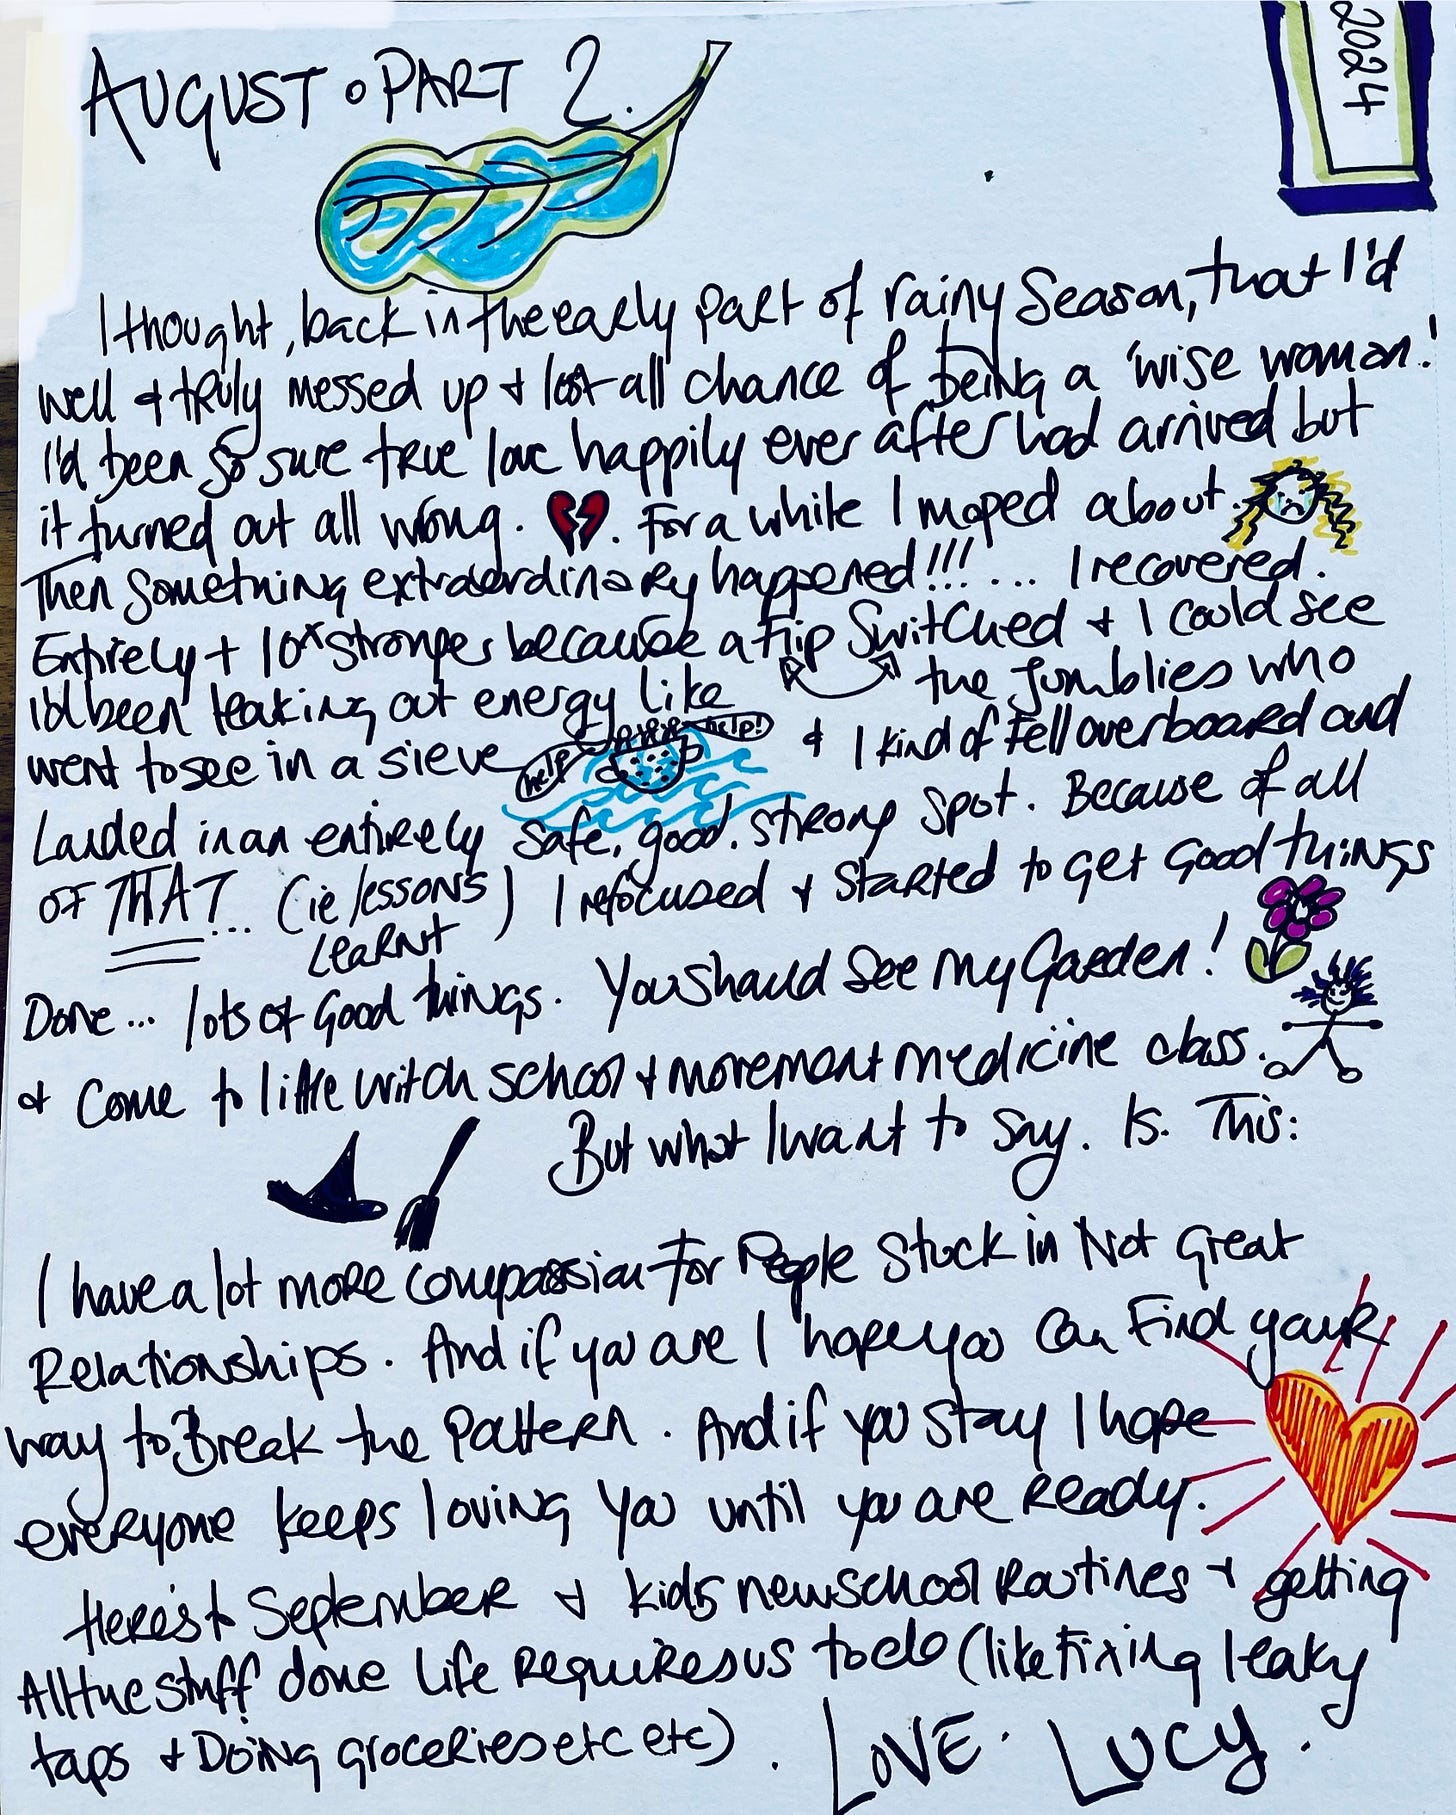 AUGUST o PART 2.
2024
I thought, back in the early part of rainy season, that I'd
well & truly messed up & lost all chance of being a 'wise woman.'
I'd been so sure true love happily ever after had arrived but
it turned out all wrong. For a while I moped about.
Then something extraordinary happened!!! ... I recovered.
Entirely + 10x stronger because a flip switched & I could see
I'd been leaking out energy like the Jumblies who
went to see in a sieve & I kind of fell overboard and
help! help!
Landed in an entirely safe, good, strong spot. Because of all
OF THAT... (ie lessons learnt) I refocused & started to get Good things
Done... lots of Good things. You should see my Garden!
& come to little witch school & movement medicine class.
But what I want to say. Is. This:
I have a lot more compassion for People Stuck in Not Great
Relationships. And if you are I hope you can find your
way to Break the pattern. And if you stay I hope
everyone keeps loving you until you are ready.
Here's to September & kids new school routines & getting
All the stuff done life requires us to do (like fixing leaky
taps & Doing groceries etc etc). LOVE. LUCY.